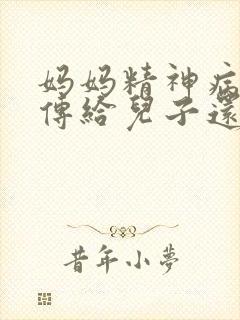 妈妈精神病
傳給兒子還
昔年小夢